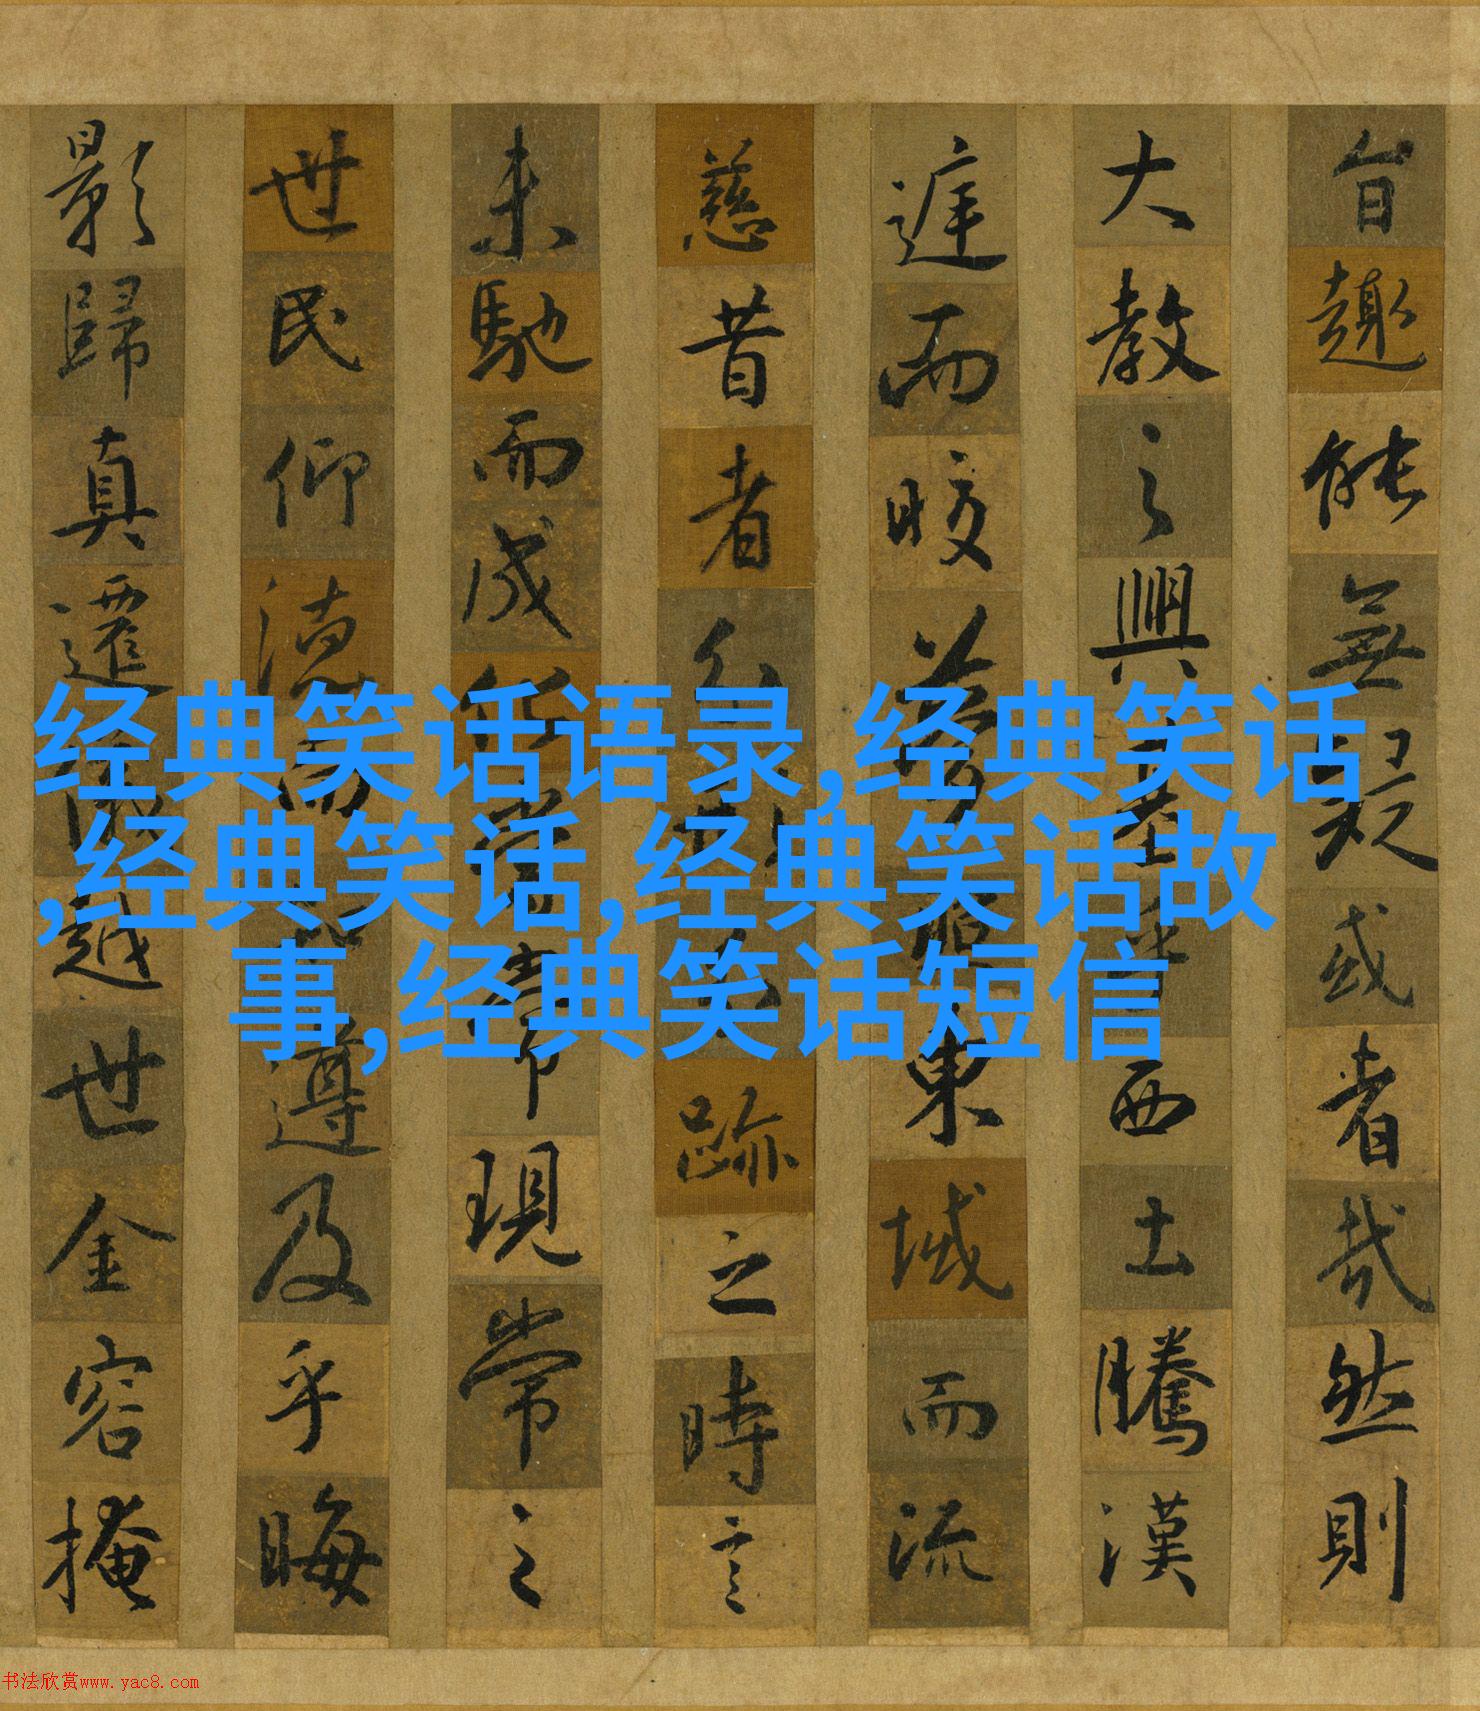 旨趣能無疑或者哉然則
大教之興基乎西土騰漢
庭而皎夢照東域而流
慈昔者分形分跡之時言
未馳而成化當常現常之
世民仰德而知遵及乎晦
影歸真遷儀越世金容掩
经典笑话语录,经典笑话
,经典笑话,经典笑话故
事,经典笑话短信
书法欣赏www.yac8.com